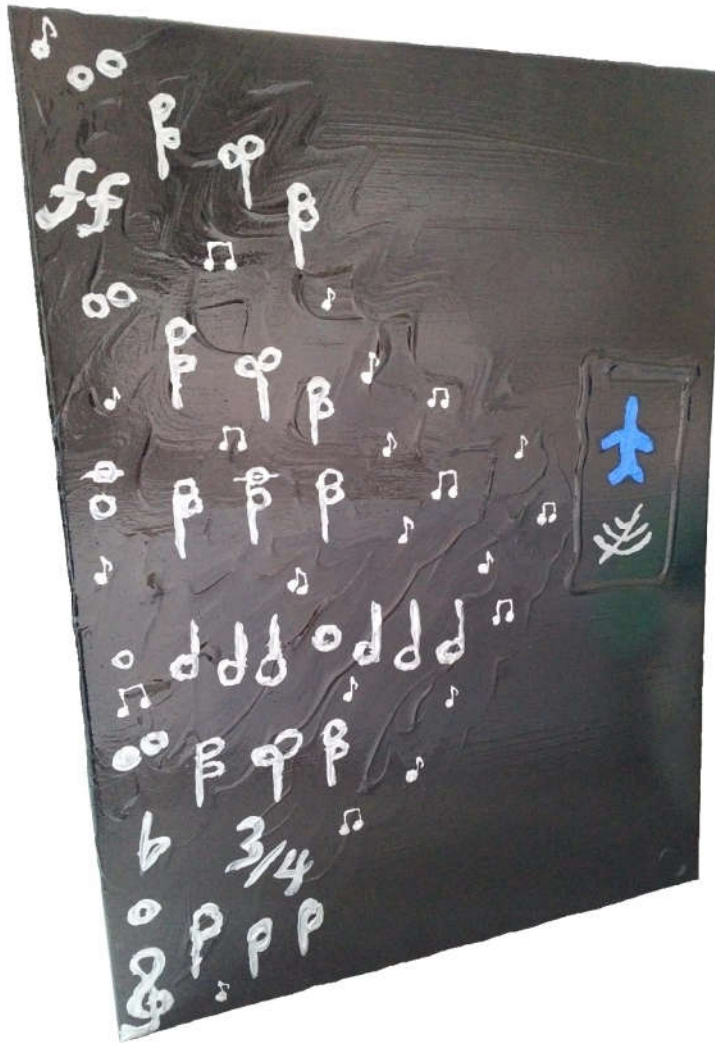 ff
♭ 3/4